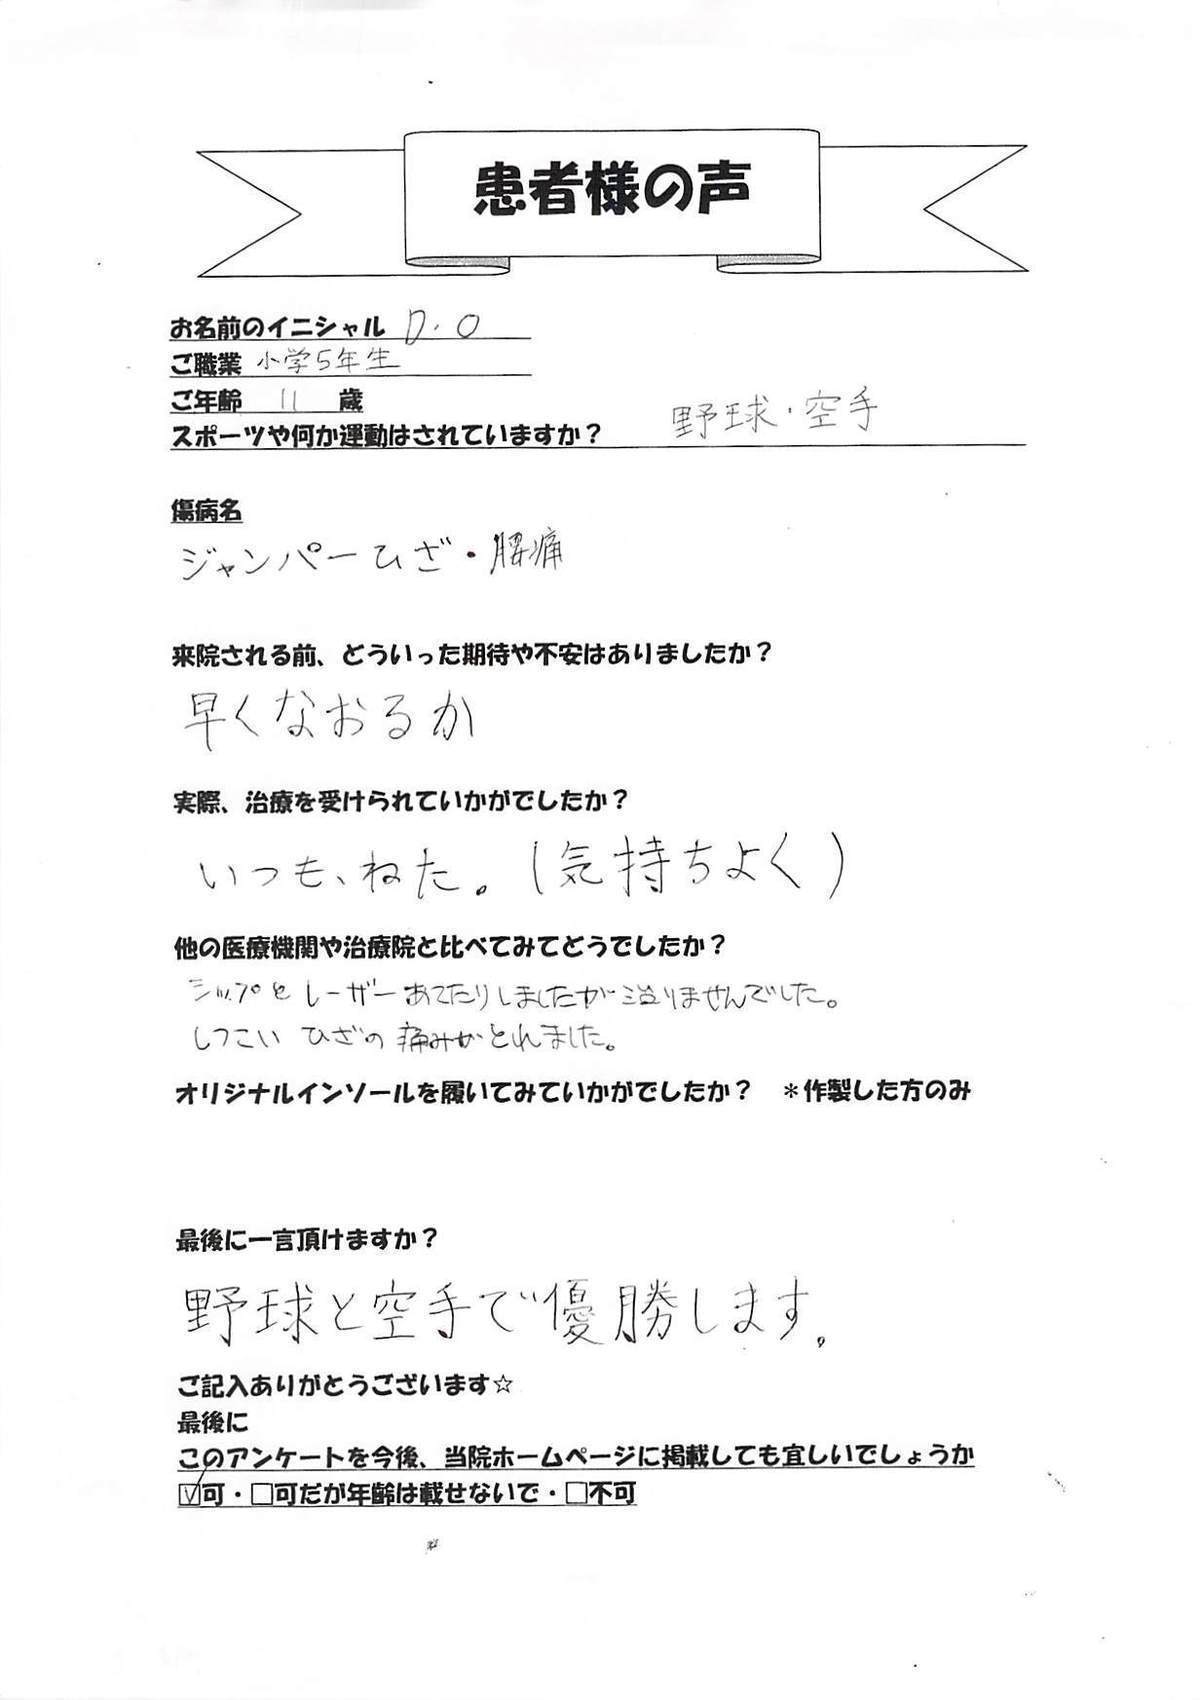 患者様の声
お名前のイニシャル D.O
ご職業 小学5年生
ご年齢 11 歳
スポーツや何か運動はされていますか? 野球・空手
傷病名
ジャンパーひざ・腰痛
来院される前、どういった期待や不安はありましたか?
早くなおるか
実際、治療を受けられていかがでしたか?
いつも、ねた。(気持ちよく)
他の医療機関や治療院と比べてみてどうでしたか?
シップとレーザーあてたりしましたが治りませんでした。
しつこい ひざの痛みがとれました。
オリジナルインソールを履いてみていかがでしたか? *作製した方のみ
最後に一言頂けますか?
野球と空手で優勝します。
ご記入ありがとうございます☆
最後に
このアンケートを今後、当院ホームページに掲載しても宜しいでしょうか
☑可・□可だが年齢は載せないで・□不可